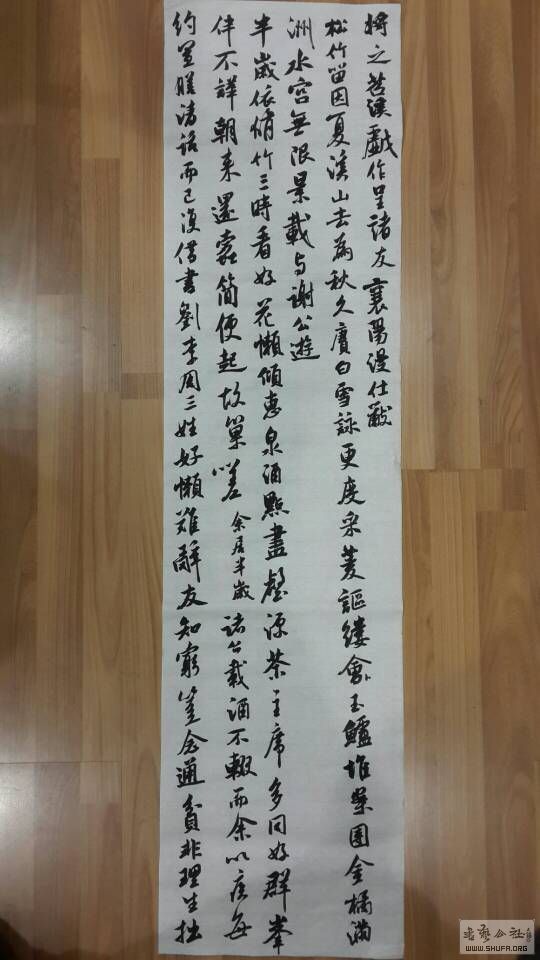 將之苕溪戲作呈諸友襄陽漫仕黻
松竹留因夏溪山去為秋久賡白雪詠更度采菱謳縷會玉鱸堆案團金橘滿
洲水宮無限景載与謝公遊
半歲依脩竹三時看好花懶傾惠泉酒點盡壑源茶主席多同好群峯
伴不譁朝来還蠹簡便起故巢嗟余居半歲諸公載酒不輟而余以疾每
約置膳清話而已復借書劉李周三姓好懶難辭友知窮豈念通貧非理生拙
书艺公社
WWW.SHUFA.ORG